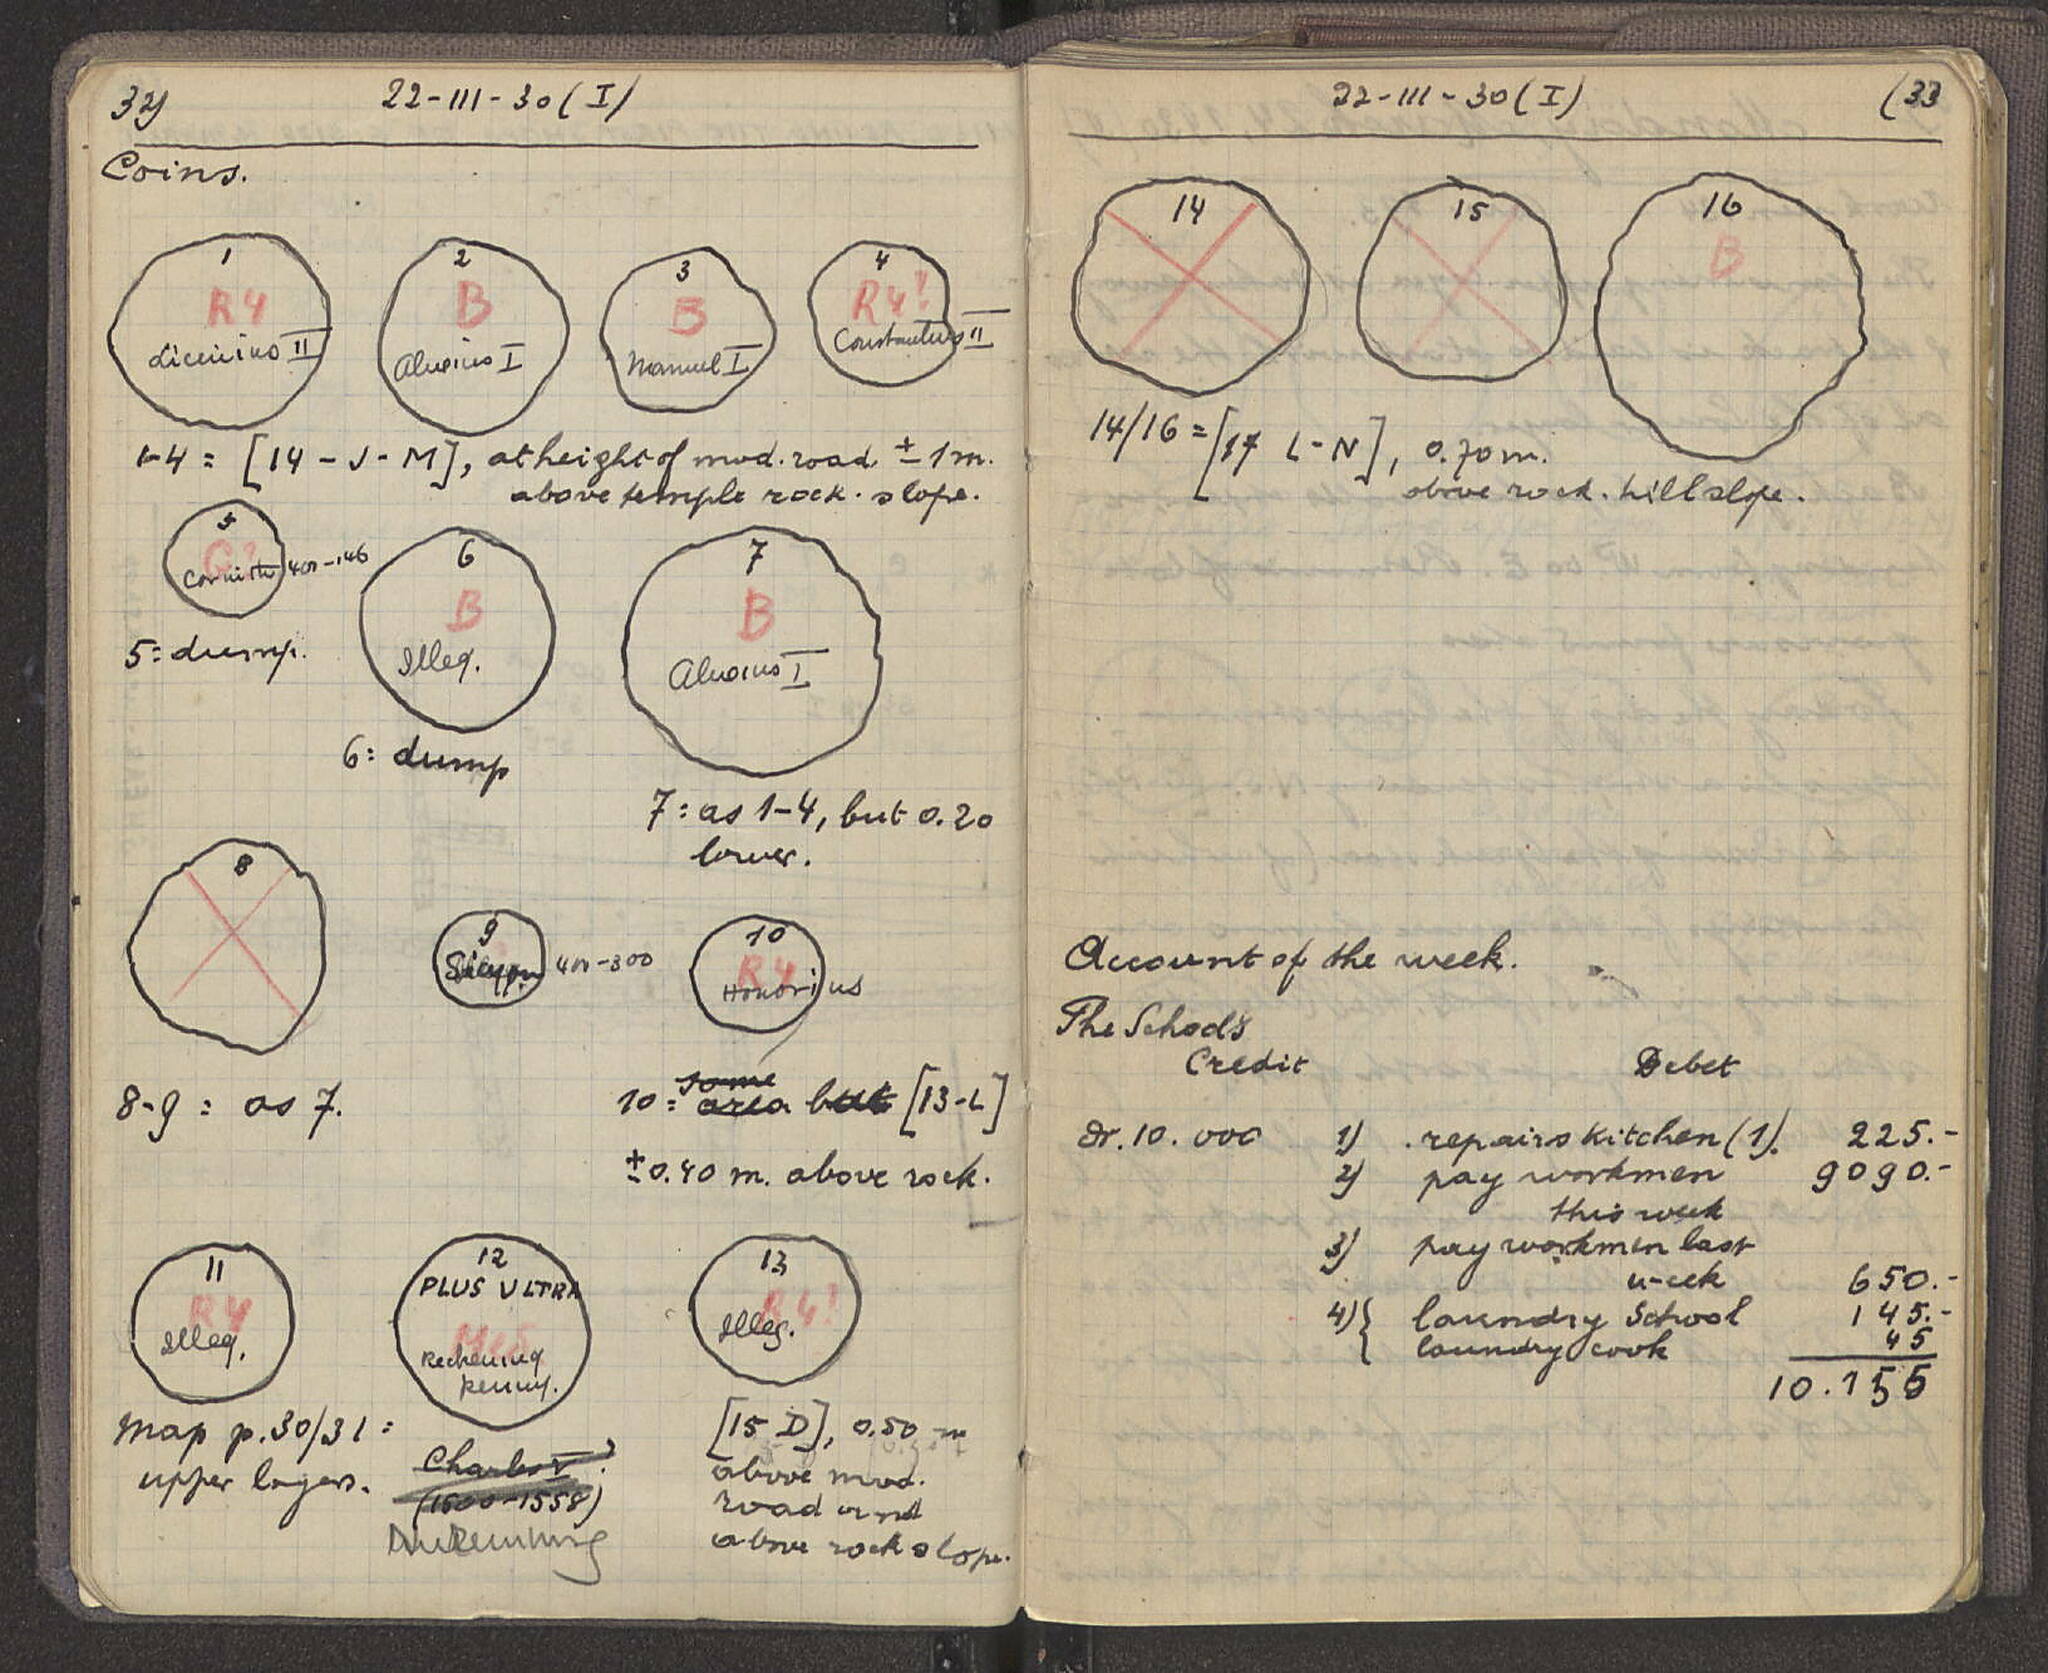 32)
22-III-30 (I)
Coins.
1
R4
Licinius II
2
B
Alexius I
3
B
Manuel I
4
R4!
Constantius II
1-4 = [14 - J - M], at height of mod. road ± 1 m.
above temple rock. slope.
5
Corinth 400-146
5: dump.
6
B
Illeg.
6: dump
7
B
Alexius I
7: as 1-4, but 0.20
lower.
8
9
Sikyon 400-300
10
R4
Honorius
8-9 : as 7.
some
10: area but [13-L]
± 0.40 m. above rock.
11
R4
Illeg.
12
PLUS ULTRA
Rechening
penny.
13
R4!
Illeg.
Map p. 30/31 :
upper layers.
Charles V ?
(1500-1558)
[15 D], 0.50 m
above mod.
road and
above rock slope.
22-III-30 (I)
(33
14
15
16
B
14/16 = [17 L-N], 0.70 m.
above rock. hillslope.
Account of the week.
The School's
Credit
Debet
Dr. 10.000
1) repairs kitchen (1). 225.-
2) pay workmen 9090.-
this week
3) pay workmen last
week 650.-
4) { laundry School 145.-
laundry cook 45
10.155